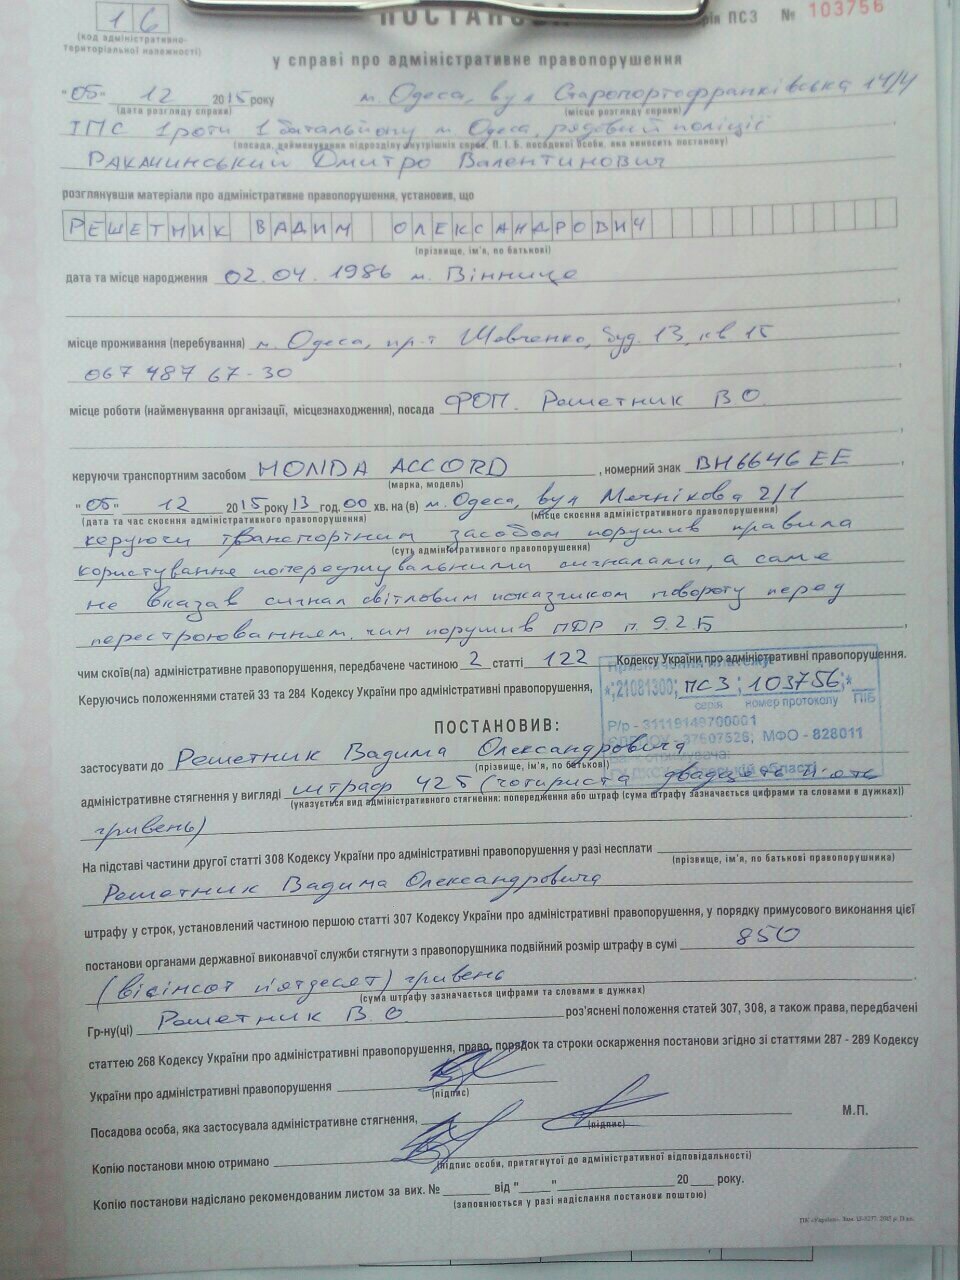 ПОСТАНОВА
1 6
ПС3 № 103756
(код адміністративно-
територіальної належності)
у справі про адміністративне правопорушення
"05" 12 2015 року м. Одеса, вул Старопортофранківська 14/4
(дата розгляду справи) (місце розгляду справи)
ІПС 1 роти 1 батальйону м. Одеса, рядовий поліції
(посада, найменування підрозділу внутрішніх справ, П. І. Б. посадової особи, яка виносить постанову)
Ракачинський Дмитро Валентинович
розглянувши матеріали про адміністративне правопорушення, установив, що
РЕШЕТНИК ВАДИМ ОЛЕКСАНДРОВИЧ
(прізвище, ім'я, по батькові)
дата та місце народження 02.04.1986 м. Вінниця
місце проживання (перебування) м. Одеса, пр-т Шевченко, буд. 13, кв 15
067 487 67-30
місце роботи (найменування організації, місцезнаходження), посада ФОП. Решетник ВО
керуючи транспортним засобом HONDA ACCORD, номерний знак ВН6646ЕЕ
(марка, модель)
"05" 12 2015 року 13 год. 00 хв. на (в) м. Одеса, вул Мечнікова 2/1
(дата та час скоєння адміністративного правопорушення) (місце скоєння адміністративного правопорушення)
керуючи транспортним засобом порушив правила
(суть адміністративного правопорушення)
користування попереджувальними сигналами, а саме
не вказав сигнал світловим показчиком повороту перед
перестроюванням. чим порушив ПДР п. 9.2.Б
чим скоїв(ла) адміністративне правопорушення, передбачене частиною 2 статті 122 Кодексу України про адміністративні правопорушення.
Призначення платежу:
Керуючись положеннями статей 33 та 284 Кодексу України про адміністративні правопорушення,
*;21081300; ПС3; 103756;*
серія номер протоколу ПІБ
ПОСТАНОВИВ:
Р/р - 31119149700001
МФО - 828011
застосувати до Решетник Вадима Олександровича
(прізвище, ім'я, по батькові)
адміністративне стягнення у вигляді штраф 425 (чотириста двадцять п'ять
(указується вид адміністративного стягнення: попередження або штраф (сума штрафу зазначається цифрами та словами в дужках))
гривень)
На підставі частини другої статті 308 Кодексу України про адміністративні правопорушення у разі несплати
(прізвище, ім'я, по батькові правопорушника)
Решетник Вадима Олександровича
штрафу у строк, установлений частиною першою статті 307 Кодексу України про адміністративні правопорушення, у порядку примусового виконання цієї
постанови органами державної виконавчої служби стягнути з правопорушника подвійний розмір штрафу в сумі 850
(вісімсот п'ятдесят) гривень
(сума штрафу зазначається цифрами та словами в дужках)
Гр-ну(ці) Решетник В.О роз'яснені положення статей 307, 308, а також права, передбачені
статтею 268 Кодексу України про адміністративні правопорушення, право, порядок та строки оскарження постанови згідно зі статтями 287 - 289 Кодексу
України про адміністративні правопорушення
(підпис)
Посадова особа, яка застосувала адміністративне стягнення, М.П.
(підпис)
Копію постанови мною отримано
(підпис особи, притягнутої до адміністративної відповідальності)
Копію постанови надіслано рекомендованим листом за вих. № від "____" 20 року.
(заповнюється у разі надіслання постанови поштою)